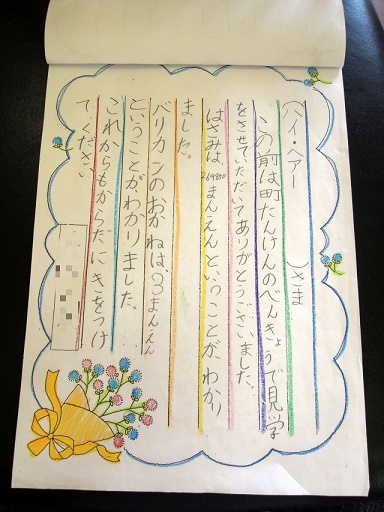 (ハイ・ヘアー)さま
この前は町たんけんのべんきょうで見学
をさせていただいてありがとうございました。
はさみは、269850まんえんということが、わかり
ました。
バリカンのおかねは、3まんえん
ということがわかりました。
これからもからだにキをつけ
てください